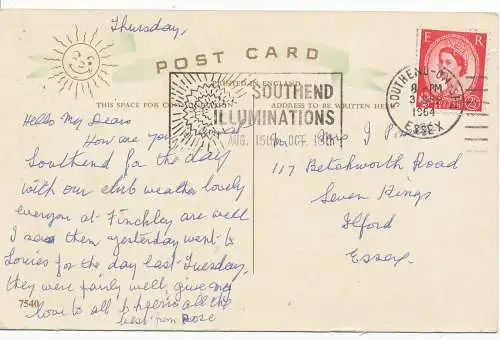 Thursday,
POST CARD
PRINTED IN ENGLAND
THIS SPACE FOR COMMUNICATION
ADDRESS TO BE WRITTEN HERE
SOUTHEND
ILLUMINATIONS
AUG. 15th OCT.
E R
SOUTHEND-ON-SEA
8 PM
1954
ESSEX
Hello My Dears
How are you
Southend for the day
with our club weather lovely
everyone at Finchley are well
I saw them yesterday went to
for the day last Tuesday,
they were fairly well, give my
love to all & all the
best from Rose
7540
Mrs I
117 Betchworth Road
Seven Kings
Ilford
Essex